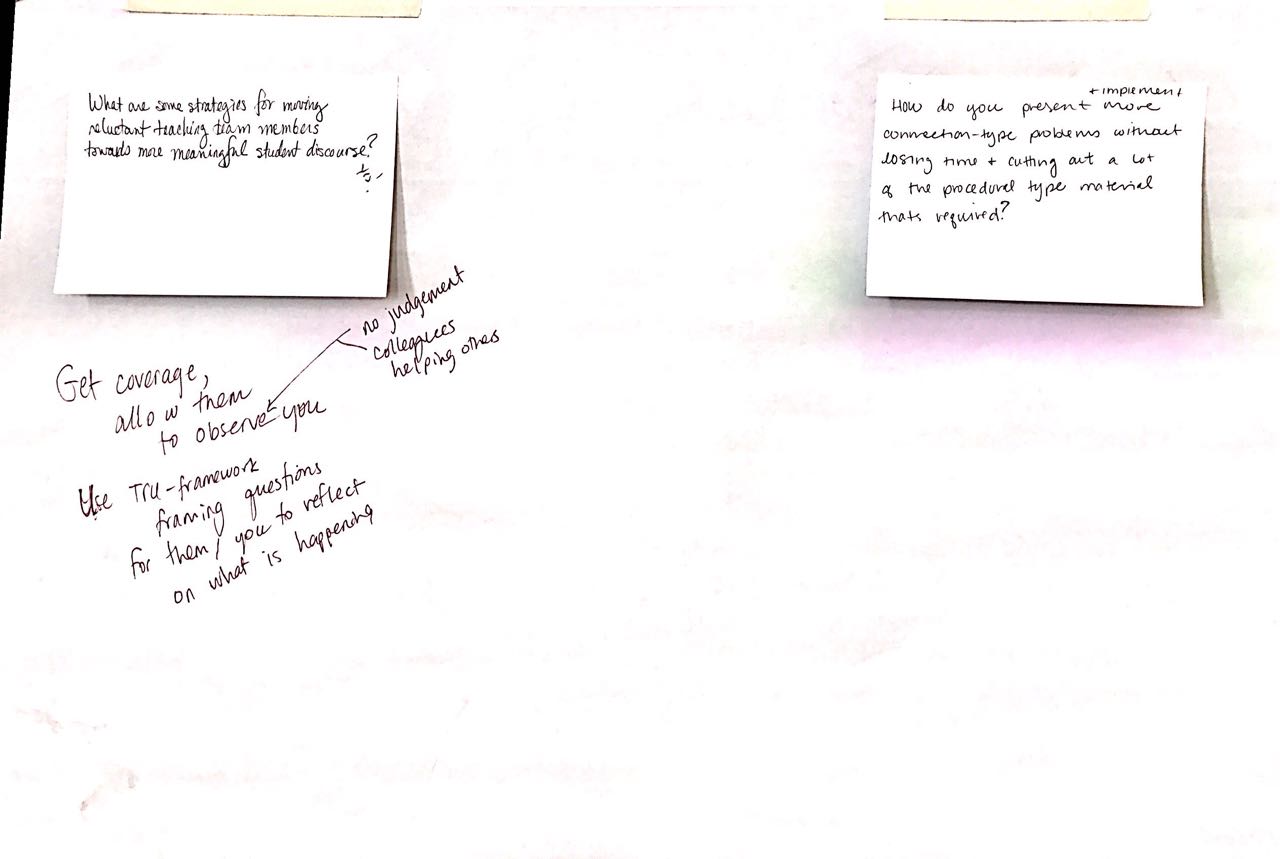 What are some strategies for moving
reluctant teaching team members
towards more meaningful student discourse?
no judgement
colleagues
helping others
Get coverage,
allow them
to observe you
Use TRU-framework
framing questions
for them/you to reflect
on what is happening
+ implement
How do you present more
connection-type problems without
losing time + cutting out a lot
of the procedural type material
thats required?